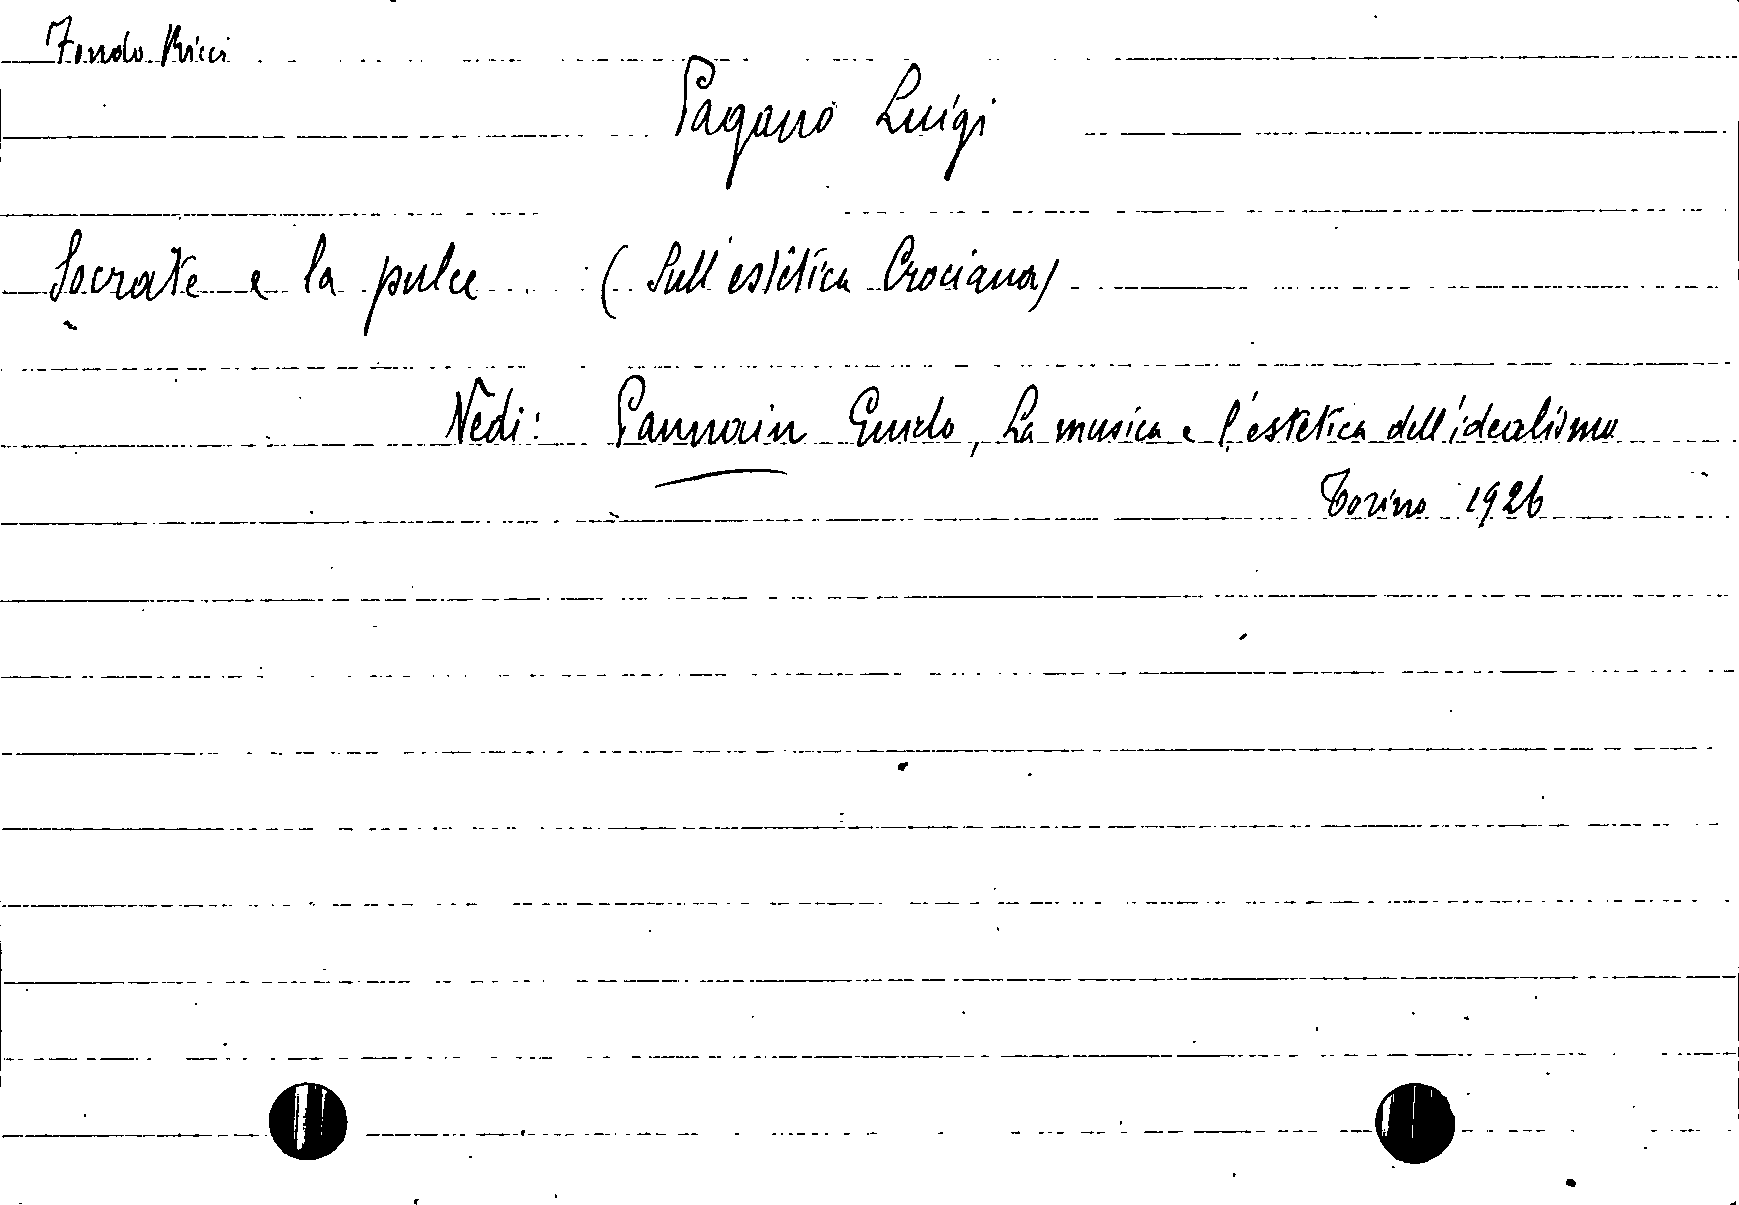 Fondo Ricci
Pagano Luigi
Socrate e la pulce (Sull'estetica Crociana)
Vedi: Pannain Guido, La musica e l'estetica dell'idealismo
Torino 1926